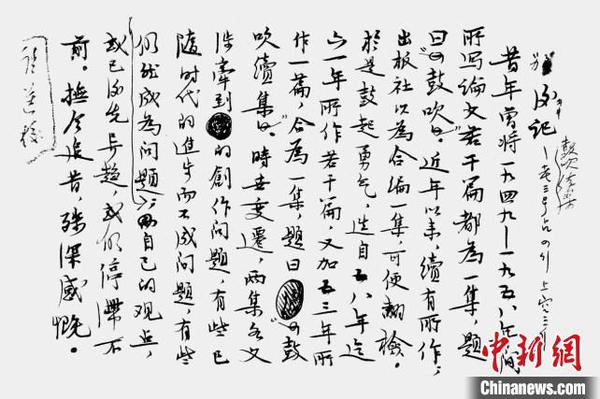 後记
昔年曾将一九四九—一九五八年间
所写论文若干篇都为一集,题
曰《鼓吹》。近年以来,续有所作,
出版社以为合编一集,可便翻检。
於是鼓起勇气,选自五八年迄
六一年所作若干篇,又加五三年所
作一篇,合为一集,题曰《鼓
吹续集》。时世变迁,两集各文
涉牵到的創作问题,有些已
随时代的进步而不成问题,有些
仍然成为问题;而自己的观点,
或已先异趋,或仍停滞不
前。撫今追昔,殊深感慨。
中新網
Chinanews.com